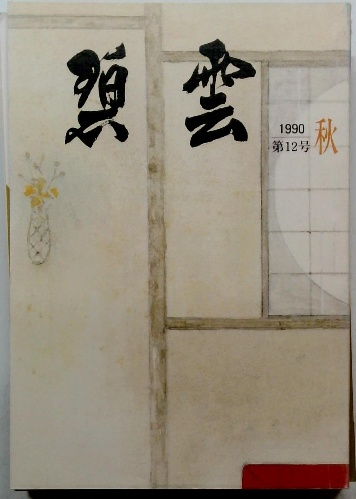 碧雲
1990
第12号
秋